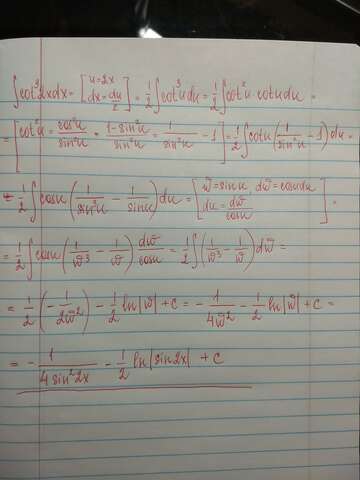 ∫cot³2xdx = [u=2x dx=du/2] = 1/2 ∫cot³u du = 1/2 ∫cot²u · cotu du =
= [cot²u = cos²u/sin²u = 1-sin²u/sin²u = 1/sin²u - 1] = 1/2 ∫cotu (1/sin²u - 1) du =
= 1/2 ∫cosu (1/sin³u - 1/sinu) du = [w=sinu dw=cosudu du=dw/cosu] =
= 1/2 ∫cosu (1/w³ - 1/w) dw/cosu = 1/2 ∫(1/w³ - 1/w) dw =
= 1/2 (-1/2w²) - 1/2 ln|w| + c = -1/4w² - 1/2 ln|w| + c =
= -1/4sin²2x - 1/2 ln|sin2x| + c